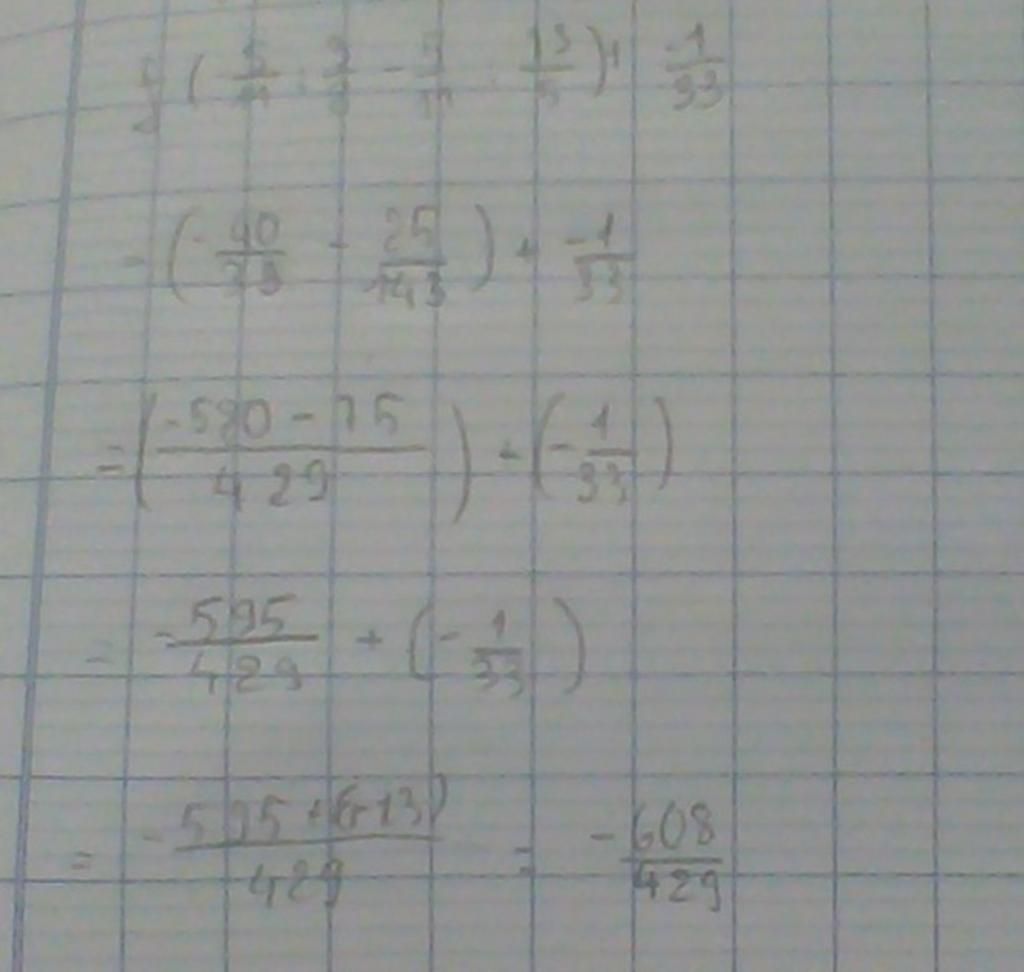 ( 5/11 : - 5/11 : 13/5 ) + -1/33
= (-40/33 - 25/143) + -1/33
= ((-520 - 75)/429) + (-1/33)
= -595/429 + (-1/33)
= (-595 + (-13))/429 = -608/429